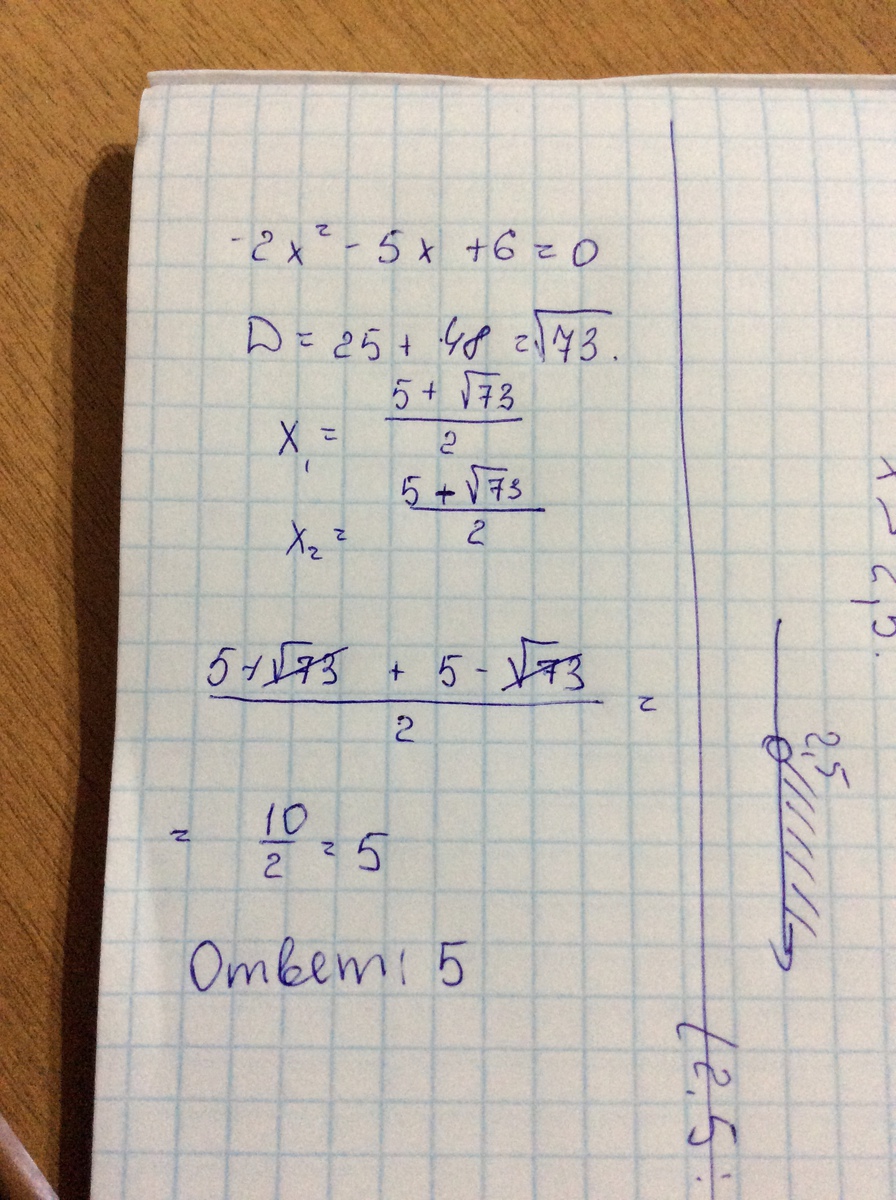 -2x² - 5x + 6 = 0
D = 25 + 48 = √73.
x₁ = (5 + √73)/2
x₂ = (5 + √73)/2
(5 + √73 + 5 - √73)/2 =
= 10/2 = 5
Ответ: 5
2,5
(2,5;